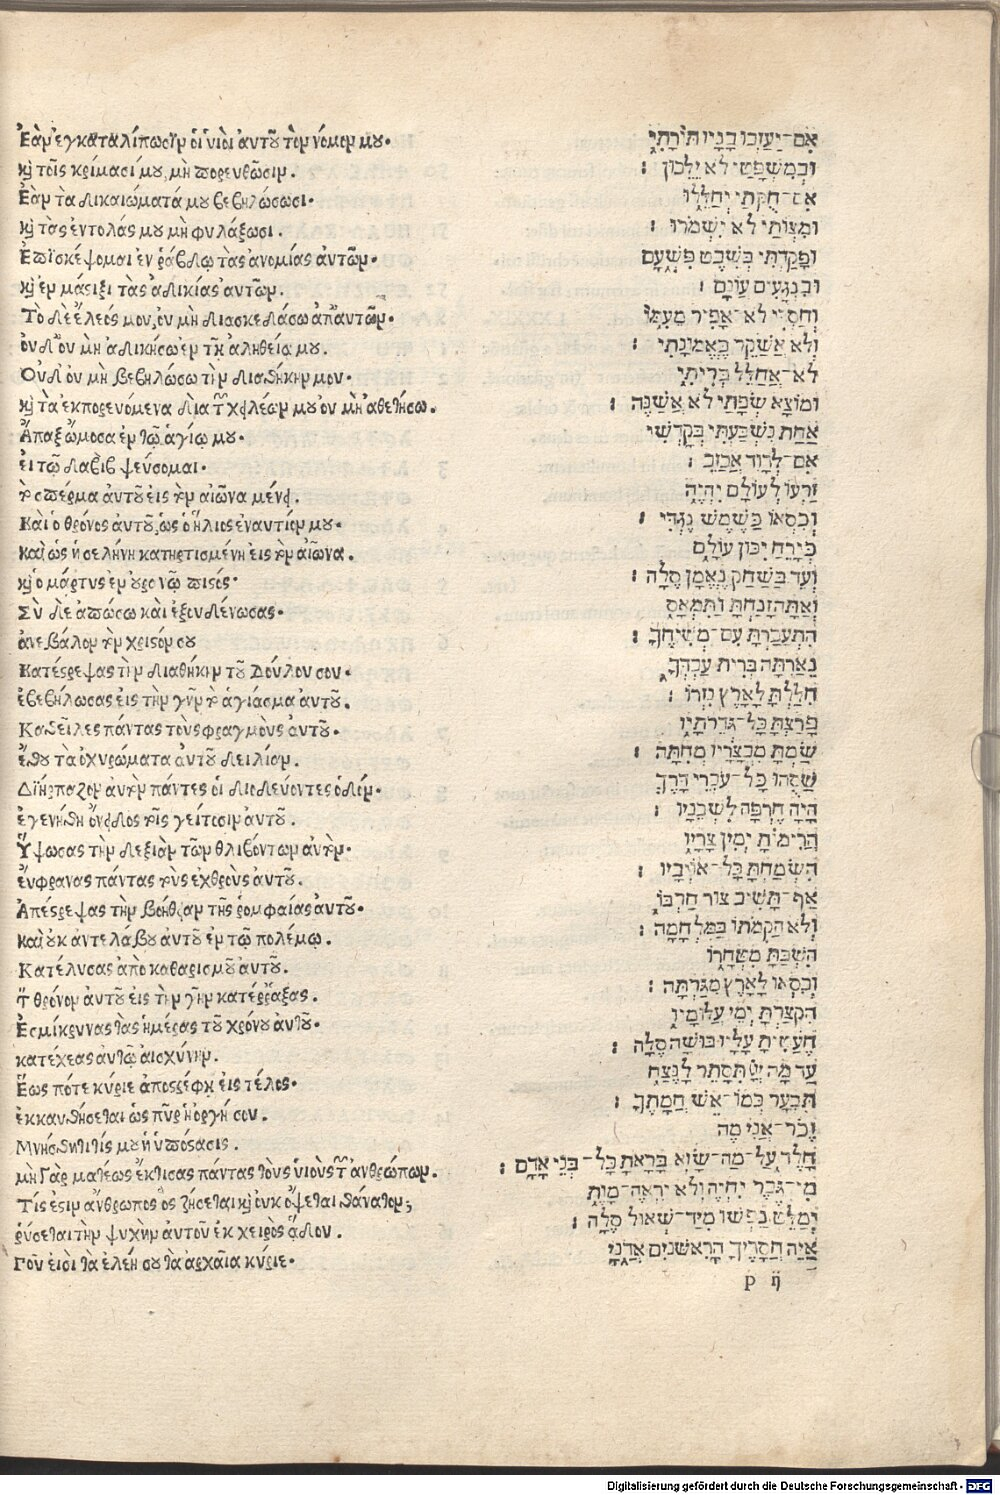 Ἐὰν ἐγκαταλίπωσιν ὁι ὑιὸι ἀυτοῦ τὸν νόμον μου.
κὶ τοῖς κρίμασί μου, μὴ πορευθῶσιν.
Ἐὰν τὰ δικαιώματά μου βεβηλώσωσι.
κὶ τὰς ἐντολάς μου μὴ φυλάξωσι.
Ἐπισκέψομαι ἐν ῥάβδῳ τὰς ἀνομίας ἀυτῶν.
κὶ ἐν μάστιξι τὰς ἀδικίας ἀυτῶν.
Τὸ δὲ ἔλεός μου, ὀυ μὴ διασκεδάσω ἀπ' ἀυτῶν.
ὀυδ' ὀυ μὴ ἀδικήσω ἐν τῇ ἀληθείᾳ μου.
Ὀυδ' ὀυ μὴ βεβηλώσω τὴν διαθήκην μου.
κὶ τὰ ἐκπορευόμενα διὰ τῶν χειλέων μου ὀυ μὴ ἀθετήσω.
Ἅπαξ ὤμοσα ἐν τῷ ἁγίῳ μου.
ἐι τῷ Δαβὶδ ψεύσομαι.
τὸ σπέρμα ἀυτοῦ ἐις τὸν αἰῶνα μένει.
Καὶ ὁ θρόνος ἀυτοῦ, ὡς ὁ ἥλιος ἐναντίον μου.
καὶ ὡς ἡ σελήνη κατηρτισμένη ἐις τὸν αἰῶνα.
κὶ ὁ μάρτυς ἐν ὀυρανῷ πιστός.
Σὺ δὲ ἀπώσω καὶ ἐξουδένωσας.
ἀνεβάλου τὸν χριστόν σου
Κατέστρεψας τὴν διαθήκην τοῦ δούλου σου.
ἐβεβήλωσας ἐις τὴν γῆν τὸ ἁγίασμα ἀυτοῦ.
Καθεῖλες πάντας τοὺς φραγμοὺς ἀυτοῦ.
ἔθου τὰ ὀχυρώματα ἀυτοῦ δειλίαν.
Διήρπαζον ἀυτὸν πάντες ὁι διοδεύοντες ὁδόν.
ἐγενήθη ὄνειδος τοῖς γείτοσιν ἀυτοῦ.
Ὕψωσας τὴν δεξιὰν τῶν θλιβόντων ἀυτόν.
ἔυφρανας πάντας τοὺς ἐχθροὺς ἀυτοῦ.
Ἀπέστρεψας τὴν βοήθειαν τῆς ῥομφαίας ἀυτοῦ.
καὶ ὀυκ ἀντελάβου ἀυτοῦ ἐν τῷ πολέμῳ.
Κατέλυσας ἀπὸ καθαρισμοῦ ἀυτοῦ.
τὸν θρόνον ἀυτοῦ ἐις τὴν γῆν κατέῤῥαξας.
Ἐσμίκρυνας τὰς ἡμέρας τοῦ χρόνου ἀυτοῦ.
κατέχεας ἀυτῷ αἰσχύνην.
Ἕως πότε κύριε ἀποστρέφῃ ἐις τέλος.
ἐκκαυθήσεται ὡς πῦρ ἡ ὀργή σου.
Μνήσθητι τίς μου ἡ ὑπόστασις.
μὴ γὰρ ματέως ἔκτισας πάντας τοὺς ὑιοὺς τῶν ἀνθρώπων.
Τίς ἐστιν ἄνθρωπος ὃς ζήσεται κὶ ὀυκ ὄψεται θάνατον;
ῥύσεται τὴν ψυχὴν ἀυτοῦ ἐκ χειρὸς ᾅδου.
Ποῦ ἐισὶ τὰ ἐλέη σου τὰ ἀρχαῖα κύριε.
אִם־יַעַזְבוּ בָנָיו תּוֹרָתִי
וּבְמִשְׁפָּטַי לֹא יֵלֵכוּן :
אִם־חֻקֹּתַי יְחַלֵּלוּ
וּמִצְוֹתַי לֹא יִשְׁמֹרוּ :
וּפָקַדְתִּי בְשֵׁבֶט פִּשְׁעָם
וּבִנְגָעִים עֲוֹנָם :
וְחַסְדִּי לֹא־אָפִיר מֵעִמּוֹ
וְלֹא אֲשַׁקֵּר בֶּאֱמוּנָתִי :
לֹא־אֲחַלֵּל בְּרִיתִי
וּמוֹצָא שְׂפָתַי לֹא אֲשַׁנֶּה :
אַחַת נִשְׁבַּעְתִּי בְקָדְשִׁי
אִם־לְדָוִד אֲכַזֵּב :
זַרְעוֹ לְעוֹלָם יִהְיֶה
וְכִסְאוֹ כַשֶּׁמֶשׁ נֶגְדִּי :
כְּיָרֵחַ יִכּוֹן עוֹלָם
וְעֵד בַּשַּׁחַק נֶאֱמָן סֶלָה :
וְאַתָּה זָנַחְתָּ וַתִּמְאָס
הִתְעַבַּרְתָּ עִם־מְשִׁיחֶךָ :
נֵאַרְתָּה בְּרִית עַבְדֶּךָ
חִלַּלְתָּ לָאָרֶץ נִזְרוֹ :
פָּרַצְתָּ כָל־גְּדֵרֹתָיו
שַׂמְתָּ מִבְצָרָיו מְחִתָּה :
שַׁסֻּהוּ כָּל־עֹבְרֵי דָרֶךְ
הָיָה חֶרְפָּה לִשְׁכֵנָיו :
הֲרִימוֹתָ יְמִין צָרָיו
הִשְׂמַחְתָּ כָּל־אוֹיְבָיו :
אַף־תָּשִׁיב צוּר חַרְבּוֹ
וְלֹא הֲקֵמֹתוֹ בַּמִּלְחָמָה :
הִשְׁבַּתָּ מִטְּהָרוֹ
וְכִסְאוֹ לָאָרֶץ מִגַּרְתָּה :
הִקְצַרְתָּ יְמֵי עֲלוּמָיו
הֶעֱטִיתָ עָלָיו בּוּשָׁה סֶלָה :
עַד־מָה יְיָ תִּסָּתֵר לָנֶצַח
תִּבְעַר כְּמוֹ־אֵשׁ חֲמָתֶךָ :
זְכֹר־אֲנִי מֶה
חָלֶד עַל־מַה־שָּׁוְא בָּרָאתָ כָל־בְּנֵי אָדָם :
מִי־גֶבֶר יִחְיֶה וְלֹא יִרְאֶה־מָּוֶת
יְמַלֵּט נַפְשׁוֹ מִיַּד־שְׁאוֹל סֶלָה :
אַיֵּה חֲסָדֶיךָ הָרִאשֹׁנִים אֲדֹנָי
p ij
Digitalisierung gefördert durch die Deutsche Forschungsgemeinschaft - DFG